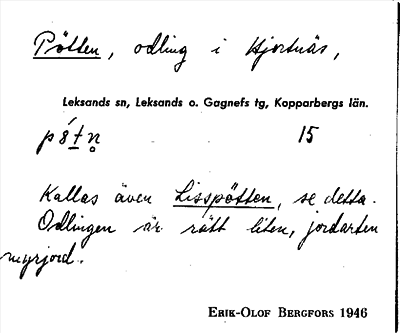 Pötten, odling i Hjortnäs,
Leksands sn, Leksands o. Gagnefs tg, Kopparbergs län.
15
Kallas även Lisspötten, se detta.
Odlingen är rätt liten, jordarten
myrjord.
ERIK-OLOF BERGFORS 1946